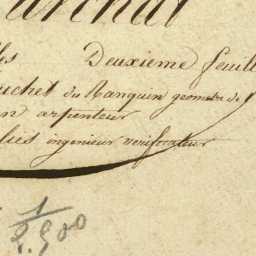 archal
les Deuxieme feuille
uchet du Ranquin geometre de 1
en arpenteur
lies ingenieur verificateur
1
2.500